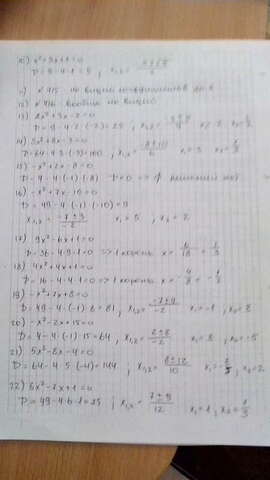 10) x²+3x+1=0
D=9-4·1=5 ; x₁,₂=
11) №415 не видно
12) №416 вообще не видно
13) 2x²+3x-2=0
D=9-4·2·(-2)=25 ; x₁,₂= -3±5/4
14) 3x²+8x-3=0
D=64-4·3·(-3)=100 ; x₁,₂= -8±10/6 x₁=-3 x₂=1/3
15) -x²+2x-8=0
D=4-4·(-1)·(-8) D<0 => решений нет
16) -x²+7x-10=0
D=49-4·(-1)·(-10)=9
x₁,₂= -7±3/-2 x₁=5 ; x₂=2
17) 9x²-6x+1=0
D=36-4·9·1=0 => 1 корень x= 6/18 = 1/3
18) 4x²+4x+1=0
D=16-4·4·1=0 => 1 корень x= -4/8 = -1/2
19) -x²+7x+8=0
D=49-4·(-1)·8=81 ; x₁,₂= -7±9/-2 x₁=-1 , x₂=8
20) -x²-2x+15=0
D=4-4·(-1)·15=64 , x₁,₂= 2±8/-2 x₁=3 x₂=-5
21) 5x²-8x-4=0
D=64-4·5·(-4)=144 , x₁,₂= 8±12/10 x₂=2
22) 6x²-7x+1=0
D=49-4·6·1=25 ; x₁,₂= 7±5/12 x₁=1 ; x₂=